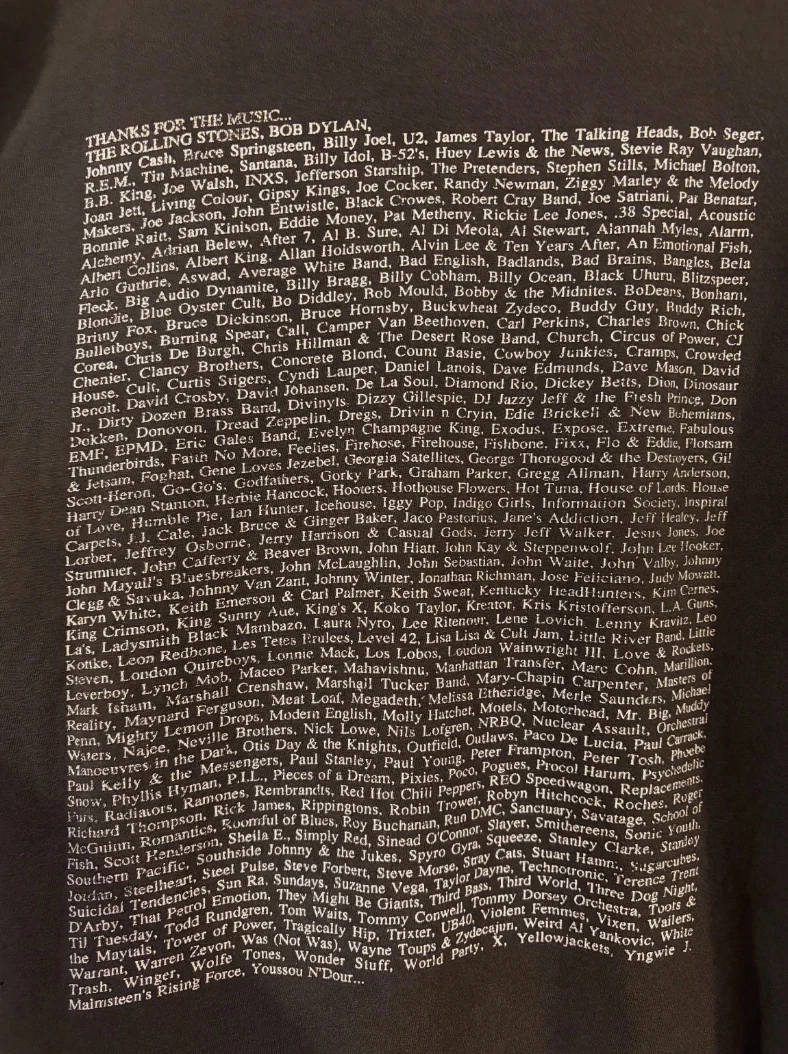 THANKS FOR THE MUSIC...
THE ROLLING STONES, BOB DYLAN,
Johnny Cash, Bruce Springsteen, Billy Joel, U2, James Taylor, The Talking Heads, Bob Seger,
R.E.M., Tin Machine, Santana, Billy Idol, B-52's, Huey Lewis & the News, Stevie Ray Vaughan,
B.B. King, Joe Walsh, INXS, Jefferson Starship, The Pretenders, Stephen Stills, Michael Bolton,
Joan Jett, Living Colour, Gipsy Kings, Joe Cocker, Randy Newman, Ziggy Marley & the Melody
Makers, Joe Jackson, John Entwistle, Black Crowes, Robert Cray Band, Joe Satriani, Pat Benatar,
Bonnie Raitt, Sam Kinison, Eddie Money, Pat Metheny, Rickie Lee Jones, .38 Special, Acoustic
Alchemy, Adrian Belew, After 7, Al B. Sure, Al Di Meola, Al Stewart, Alannah Myles, Alarm,
Albert Collins, Albert King, Allan Holdsworth, Alvin Lee & Ten Years After, An Emotional Fish,
Arlo Guthrie, Aswad, Average White Band, Bad English, Badlands, Bad Brains, Bangles, Bela
Fleck, Big Audio Dynamite, Billy Bragg, Billy Cobham, Billy Ocean, Black Uhuru, Blitzspeer,
Blondie, Blue Oyster Cult, Bo Diddley, Rob Mould, Bobby & the Midnites. BoDeans, Bonham,
Britny Fox, Bruce Dickinson, Bruce Hornsby, Buckwheat Zydeco, Buddy Guy, Buddy Rich,
Bulletboys, Burning Spear, Call, Camper Van Beethoven, Carl Perkins, Charles Brown, Chick
Corea, Chris De Burgh, Chris Hillman & The Desert Rose Band, Church, Circus of Power, CJ
Chenier, Clancy Brothers, Concrete Blond, Count Basie, Cowboy Junkies, Cramps, Crowded
House, Cult, Curtis Stigers, Cyndi Lauper, Daniel Lanois, Dave Edmunds, Dave Mason, David
Benoit, David Crosby, David Johansen, De La Soul, Diamond Rio, Dickey Betts, Dion, Dinosaur
Jr., Dirty Dozen Brass Band, Divinyls, Dizzy Gillespie, DJ Jazzy Jeff & the Fresh Prince, Don
Dokken, Donovon, Dread Zeppelin, Dregs, Drivin n Cryin, Edie Brickell & New Bohemians,
EMF, EPMD, Eric Gales Band, Evelyn Champagne King, Exodus, Expose, Extreme, Fabulous
Thunderbirds, Faith No More, Feelies, Firehose, Firehouse, Fishbone, Fixx, Flo & Eddie, Flotsam
& Jetsam, Foghat, Gene Loves Jezebel, Georgia Satellites, George Thorogood & the Destroyers, Gil
Scott-Heron, Go-Go's, Godfathers, Gorky Park, Graham Parker, Gregg Allman, Harry Anderson,
Harry Dean Stanton, Herbie Hancock, Hooters, Hothouse Flowers, Hot Tuna, House of Lords, House
of Love, Humble Pie, Ian Hunter, Icehouse, Iggy Pop, Indigo Girls, Information Society, Inspiral
Carpets, J.J. Cale, Jack Bruce & Ginger Baker, Jaco Pastorius, Jane's Addiction, Jeff Healey, Jeff
Lorber, Jeffrey Osborne, Jerry Harrison & Casual Gods, Jerry Jeff Walker, Jesus Jones, Joe
Strummer, John Cafferty & Beaver Brown, John Hiatt, John Kay & Steppenwolf, John Lee Hooker,
John Mayall's Bluesbreakers, John McLaughlin, John Sebastian, John Waite, John Valby, Johnny
Clegg & Savuka, Johnny Van Zant, Johnny Winter, Jonathan Richman, Jose Feliciano, Judy Mowatt,
Karyn White, Keith Emerson & Carl Palmer, Keith Sweat, Kentucky HeadHunters, Kim Carnes,
King Crimson, King Sunny Aue, King's X, Koko Taylor, Kreator, Kris Kristofferson, L.A. Guns,
La's, Ladysmith Black Mambazo, Laura Nyro, Lee Ritenour, Lene Lovich, Lenny Kravitz, Leo
Kottke, Leon Redbone, Les Tetes Brulees, Level 42, Lisa Lisa & Cult Jam, Little River Band, Little
Steven, London Quireboys, Lonnie Mack, Los Lobos, Loudon Wainwright III, Love & Rockets,
Loverboy, Lynch Mob, Maceo Parker, Mahavishnu, Manhattan Transfer, Marc Cohn, Marillion,
Mark Isham, Marshall Crenshaw, Marshall Tucker Band, Mary-Chapin Carpenter, Masters of
Reality, Maynard Ferguson, Meat Loaf, Megadeth, Melissa Etheridge, Merle Saunders, Michael
Penn, Mighty Lemon Drops, Modern English, Molly Hatchet, Motels, Motorhead, Mr. Big, Muddy
Waters, Najee, Neville Brothers, Nick Lowe, Nils Lofgren, NRBQ, Nuclear Assault, Orchestral
Manoeuvres in the Dark, Otis Day & the Knights, Outfield, Outlaws, Paco De Lucia, Paul Carrack,
Paul Kelly & the Messengers, Paul Stanley, Paul Young, Peter Frampton, Peter Tosh, Phoebe
Snow, Phyllis Hyman, P.I.L., Pieces of a Dream, Pixies, Poco, Pogues, Procol Harum, Psychedelic
Furs, Radiators, Ramones, Rembrandts, Red Hot Chili Peppers, REO Speedwagon, Replacements,
Richard Thompson, Rick James, Rippingtons, Robin Trower, Robyn Hitchcock, Roches, Roger
McGuinn, Romantics, Roomful of Blues, Roy Buchanan, Run DMC, Sanctuary, Savatage, School of
Fish, Scott Henderson, Sheila E., Simply Red, Sinead O'Connor, Slayer, Smithereens, Sonic Youth,
Southern Pacific, Southside Johnny & the Jukes, Spyro Gyra, Squeeze, Stanley Clarke, Stanley
Jordan, Steelheart, Steel Pulse, Steve Forbert, Steve Morse, Stray Cats, Stuart Hamm, Sugarcubes,
Suicidal Tendencies, Sun Ra, Sundays, Suzanne Vega, Taylor Dayne, Technotronic, Terence Trent
D'Arby, That Petrol Emotion, They Might Be Giants, Third Bass, Third World, Three Dog Night,
Til Tuesday, Todd Rundgren, Tom Waits, Tommy Conwell, Tommy Dorsey Orchestra, Toots &
the Maytals, Tower of Power, Tragically Hip, Trixter, UB40, Violent Femmes, Vixen, Wailers,
Warrant, Warren Zevon, Was (Not Was), Wayne Toups & Zydecajun, Weird Al Yankovic, White
Trash, Winger, Wolfe Tones, Wonder Stuff, World Party, X, Yellowjackets, Yngwie J.
Malmsteen's Rising Force, Youssou N'Dour...